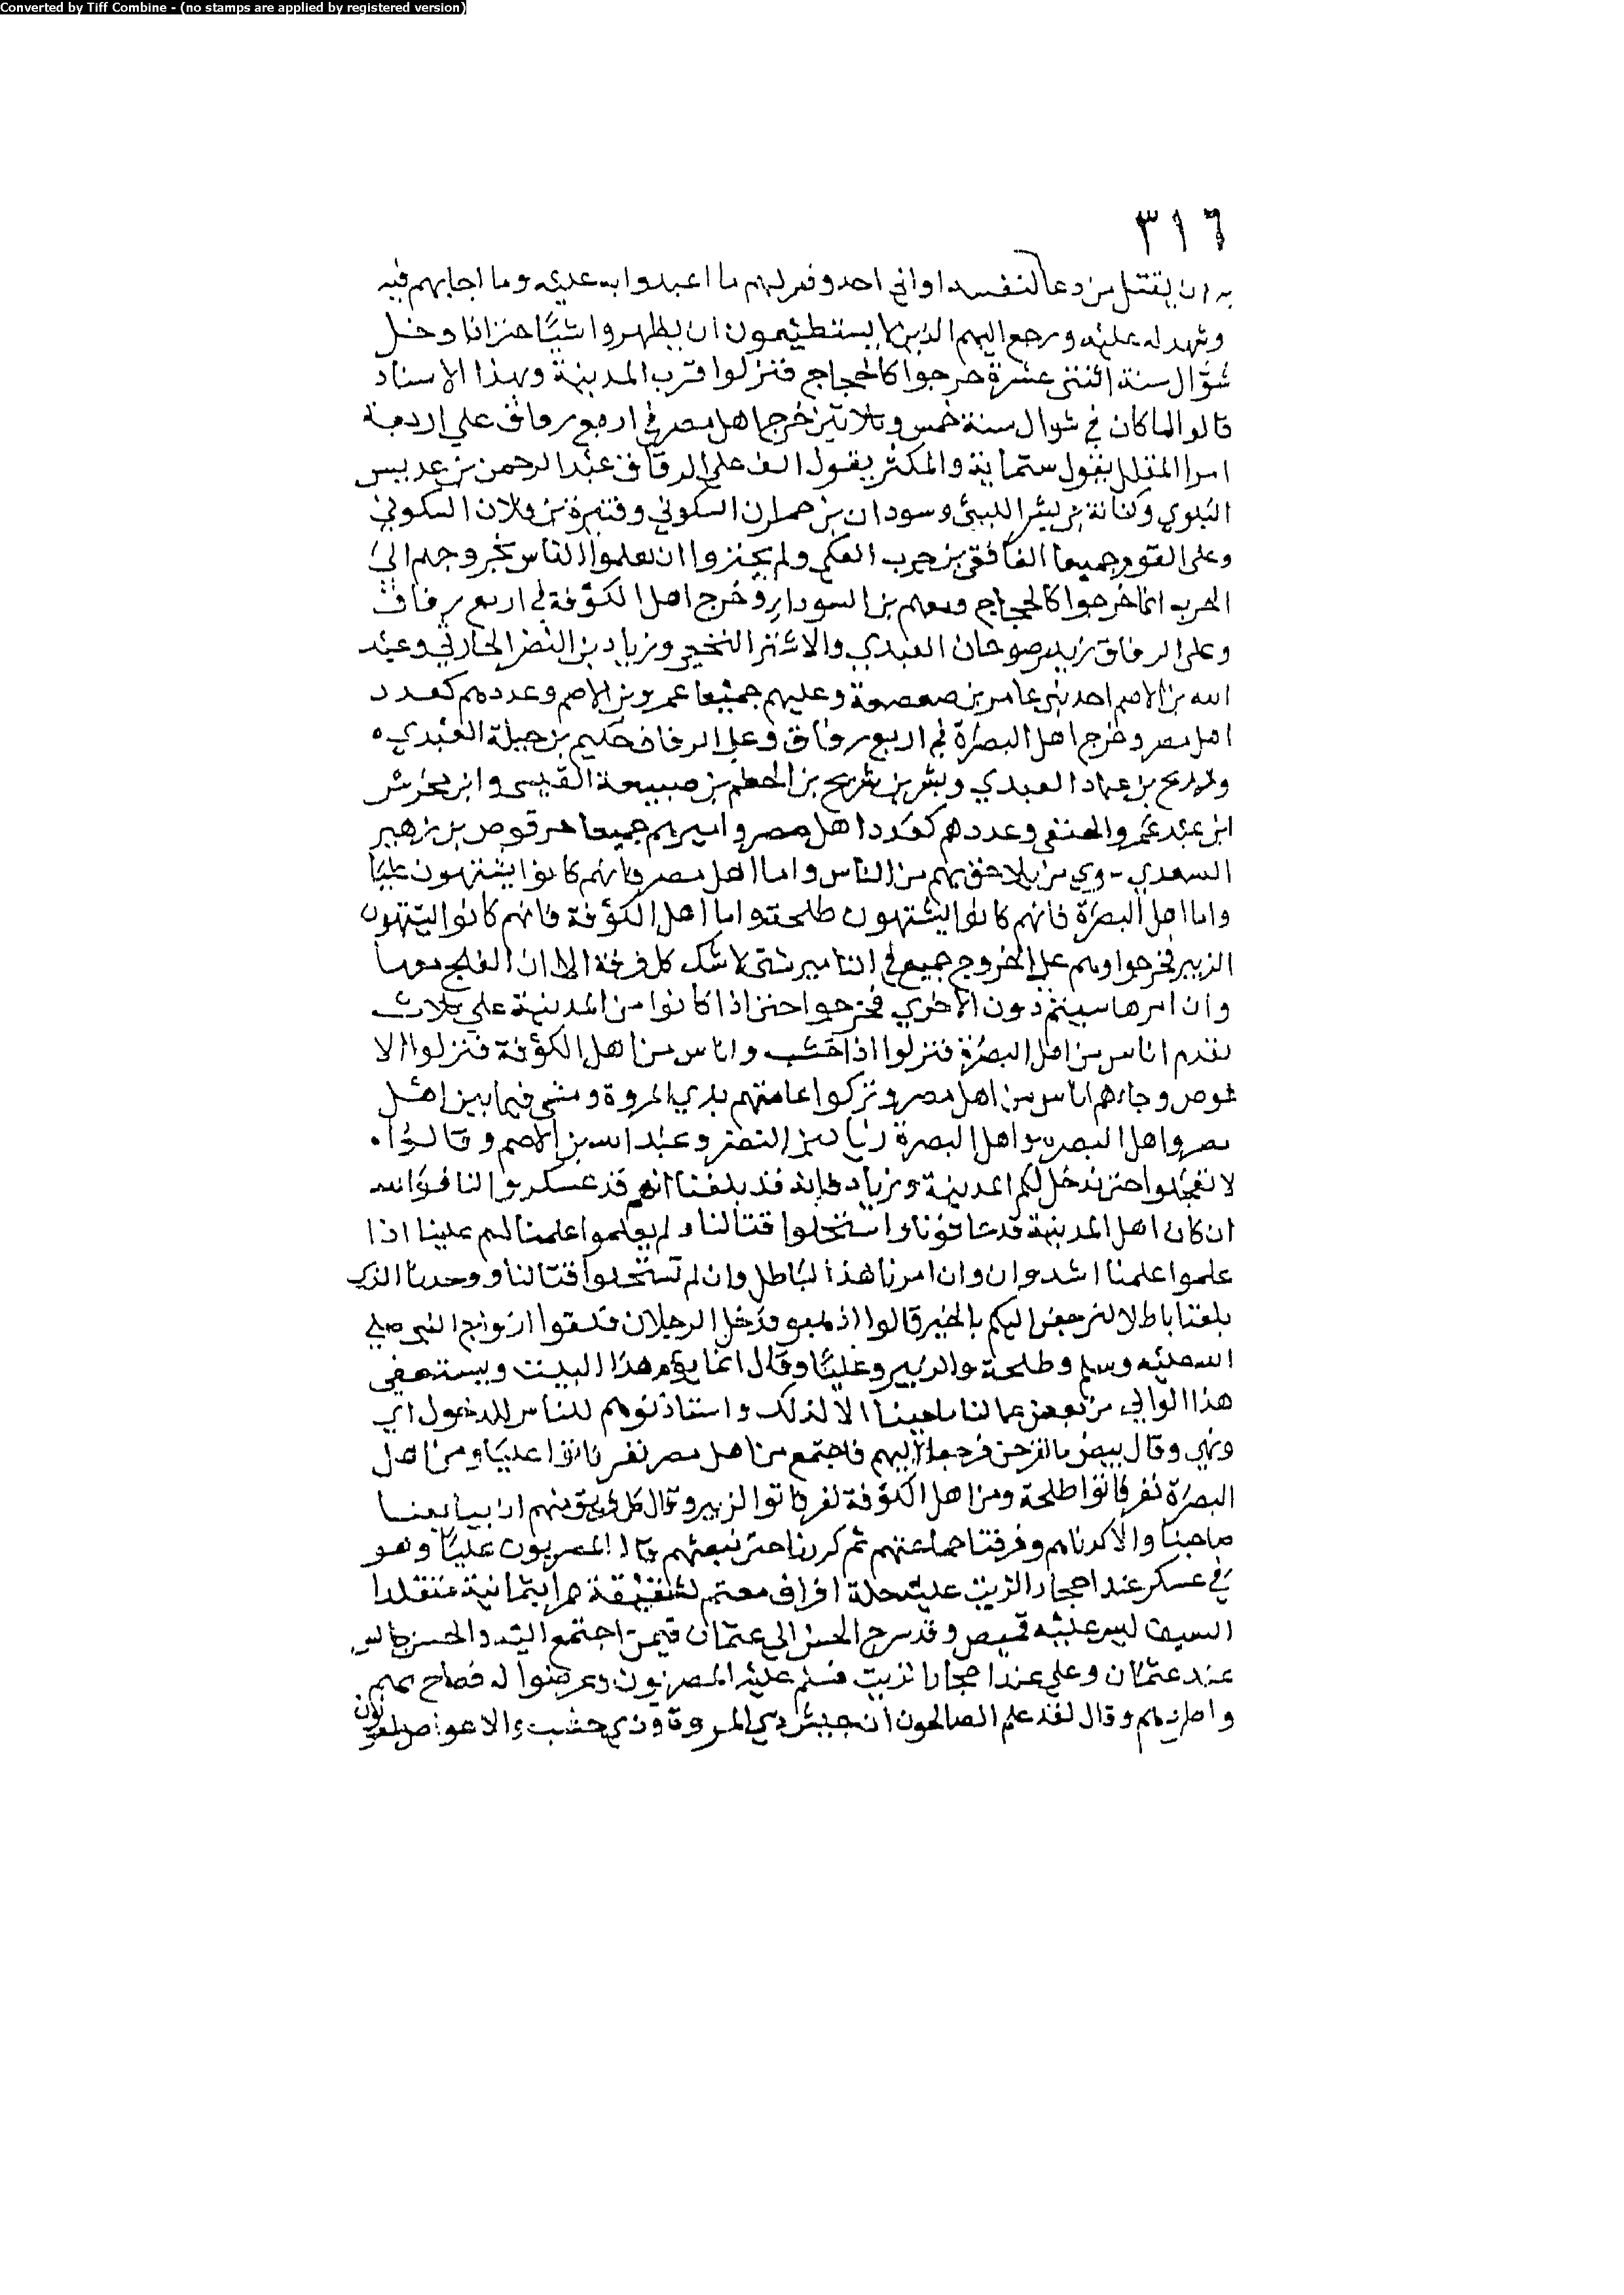 Converted by Tiff Combine - (no stamps are applied by registered version)
٣١٦
به ان يقتل من دعا لنفسه او الي احد وفسر لهم ما اعتدوا به عليه وما اجابهم فيه
وشهد له عليه ورجع اليهم الذين لا يستطيعون ان يظهروا شيئا حتى اذا دخل
شوال سنة اثنتى عشرة خرجوا كالحجاج فنزلوا قرب المدينة وبهذا الاسناد
قالو الما كان في شوال سنة خمس وثلاثين خرج اهل مصر في اربع رفاق علي اربعة
امرا المقلل يقول ستماية والمكثر يقول الف علي الرفاق عبد الرحمن بن عديس
البلوي وكنانة بن بشر الليثي وسودان بن حمران السكوني وقتيرة بن فلان السكوني
وعلى القوم جميعا الغافقي بن حرب العكي ولم يجتروا ان يعلموا الناس بخروجهم الي
الحرب انما خرجوا كالحجاج ومعهم بن السودا وخرج اهل الكوفة في اربع رفاق
وعلى الرفاق زيد بن صوحان العبدي والاشتر النخعي وزياد بن النضر الحارثي وعبد
الله بن الاصم احد بني عامر بن صعصعة وعليهم جميعا عمرو بن الاصم وعددهم كعدد
اهل مصر وخرج اهل البصرة في اربع رفاق وعلى الرفاق حكيم بن جبلة العبدي
وذريح بن عباد العبدي وبشر بن شريح بن الحطم بن ضبيعة القيسي وابن محرش
ابن عبد عمرو الحنفي وعددهم كعدد اهل مصر واميرهم جميعا حرقوص بن زهير
السعدي - وي من تلاحق بهم من الناس واما اهل مصر فانهم كانوا يشتهون عليا
واما اهل البصرة فانهم كانوا يشتهون طلحة واما اهل الكوفة فانهم كانوا يشتهون
الزبير فخرجوا وهم على الخروج جميع في الناس شتى لا تشك كل فرقة الا ان الفلج معها
وان امرها سيتم دون الاخري فخرجوا حتى اذا كانوا من المدينة علي ثلاث
تقدم اناس من اهل البصرة فنزلوا ذا خشب واناس من اهل الكوفة فنزلوا الا
عوص وجاءهم اناس من اهل مصر وتركوا عامتهم بذي المروة ومشى فيما بين اهل
مصر واهل البصرة واهل البصرة زياد بن النضر وعبد الله بن الاصم وقالوا
لا تعجلوا حتى ندخل لكم المدينة ونرتاد فانه قد بلغنا انهم قد عسكروا لنا فوالله
ان كان اهل المدينة قد خافونا واستحلوا قتالنا ولم يعلموا علمنا لهم علينا اذا
علموا علمنا اشد وان امرنا هذا لباطل وان لم يستحلوا قتالنا ووجدنا الذي
بلغنا باطلا لنرجعن اليكم بالخبر قالوا اذهبو فدخل الرجلان فلقوا ازواج النبي صلي
الله عليه وسلم وطلحة والزبير وعليا وقال انما نؤم هذا البيت ونستعفي
هذا الوالي من بعض عمالنا ما جينا الا لذلك واستاذنوهم للناس للدخول ابي
ونهي وقال بيض ما يفرخن فرجعا اليهم فاجتمع من اهل مصر نفر فاتوا عليا ومن اهل
البصرة نفر فاتوا طلحة ومن اهل الكوفة نفر فاتوا الزبير وقال كل فريق منهم ان بايعنا
صاحبنا والا كدناهم وفرقنا جماعتهم ثم كررنا حتى نبغتهم فاتا المصريون عليا وهو
في عسكر عند احجار الزيت عليه حلة افواف معتم بشقيقة حمرا يمانية متقلدا
السيف ليس عليه قميص وقد سرح الحسن الي عثمان فيمن اجتمع اليه والحسن جالس
عند عثمان وعلي عند احجار الزيت فسلم عليه المصريون وعرضوا له فصاح بهم
واطردهم وقال لقد علم الصالحون ان جيش ذي المروة وذي خشب والاعوص ملعونون